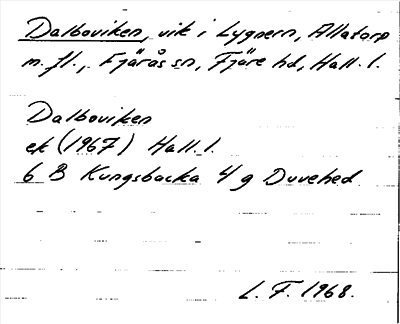 Dalboviken, vik i Lygnern, Allatorp
m.fl., Fjärås sn, Fjäre hd, Hall. l.
Dalboviken
ek (1967) Hall. l.
6 B Kungsbacka 4 g Duvehed
L. F. 1968.